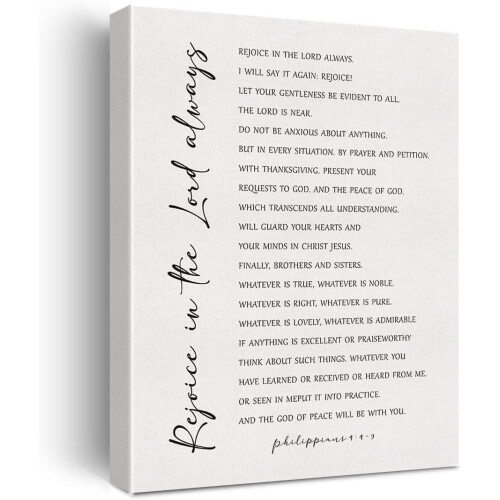 Rejoice in the Lord always
REJOICE IN THE LORD ALWAYS.
I WILL SAY IT AGAIN: REJOICE!
LET YOUR GENTLENESS BE EVIDENT TO ALL.
THE LORD IS NEAR.
DO NOT BE ANXIOUS ABOUT ANYTHING.
BUT IN EVERY SITUATION. BY PRAYER AND PETITION.
WITH THANKSGIVING. PRESENT YOUR
REQUESTS TO GOD. AND THE PEACE OF GOD.
WHICH TRANSCENDS ALL UNDERSTANDING.
WILL GUARD YOUR HEARTS AND
YOUR MINDS IN CHRIST JESUS.
FINALLY, BROTHERS AND SISTERS.
WHATEVER IS TRUE, WHATEVER IS NOBLE.
WHATEVER IS RIGHT, WHATEVER IS PURE.
WHATEVER IS LOVELY, WHATEVER IS ADMIRABLE
IF ANYTHING IS EXCELLENT OR PRAISEWORTHY
THINK ABOUT SUCH THINGS. WHATEVER YOU
HAVE LEARNED OR RECEIVED OR HEARD FROM ME.
OR SEEN IN MEPUT IT INTO PRACTICE.
AND THE GOD OF PEACE WILL BE WITH YOU.
philippians 4:4-9